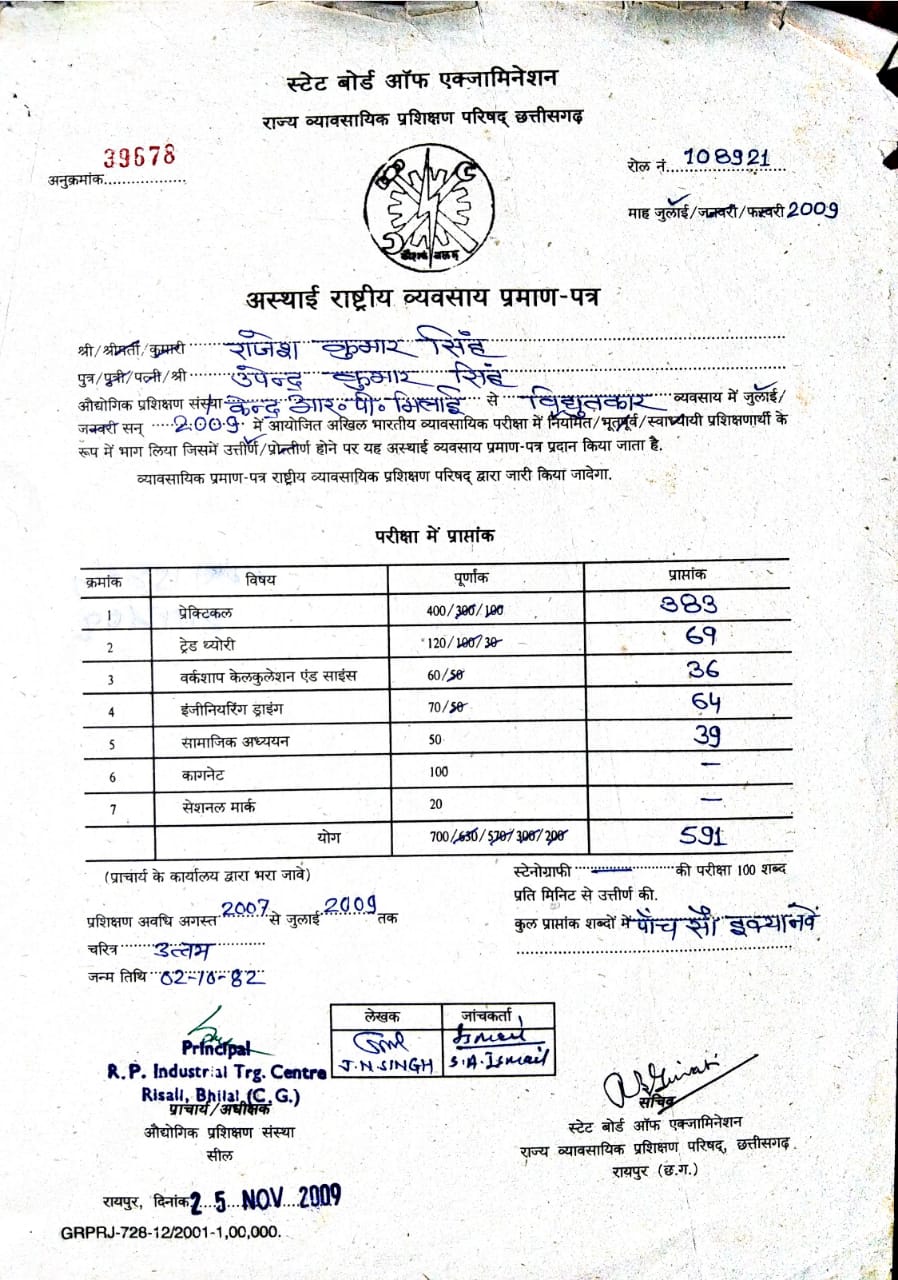 स्टेट बोर्ड ऑफ एक्जामिनेशन
राज्य व्यावसायिक प्रशिक्षण परिषद् छत्तीसगढ़
अनुक्रमांक 39678
रोल नं. 108921
माह जुलाई/जनवरी/फरवरी 2009
अस्थाई राष्ट्रीय व्यवसाय प्रमाण-पत्र
श्री/श्रीमती/कुमारी राजेश कुमार सिंह
पुत्र/पुत्री/पत्नी/श्री उपेन्द्र कुमार सिंह
औद्योगिक प्रशिक्षण संस्था/केन्द्र आर॰ पी॰ भिलाई से विद्युतकार व्यवसाय में जुलाई/
जनवरी सन् 2009 में आयोजित अखिल भारतीय व्यावसायिक परीक्षा में नियमित/भूतपूर्व/स्वाध्यायी प्रशिक्षणार्थी के
रूप में भाग लिया जिसमें उत्तीर्ण/प्रोन्तीर्ण होने पर यह अस्थाई व्यवसाय प्रमाण-पत्र प्रदान किया जाता है.
व्यावसायिक प्रमाण-पत्र राष्ट्रीय व्यावसायिक प्रशिक्षण परिषद् द्वारा जारी किया जावेगा.
परीक्षा में प्राप्तांक
क्रमांक विषय पूर्णांक प्राप्तांक
1 प्रेक्टिकल 400/300/100 383
2 ट्रेड थ्योरी 120/100/30 69
3 वर्कशाप केलकुलेशन एंड साइंस 60/50 36
4 इंजीनियरिंग ड्राइंग 70/50 64
5 सामाजिक अध्ययन 50 39
6 कागनेट 100 –
7 सेशनल मार्क 20 –
योग 700/650/570/300/200 591
(प्राचार्य के कार्यालय द्वारा भरा जावे)
स्टेनोग्राफी की परीक्षा 100 शब्द
प्रति मिनिट से उत्तीर्ण की.
प्रशिक्षण अवधि अगस्त 2007 से जुलाई 2009 तक
कुल प्राप्तांक शब्दों में पाँच सौ इक्यानवें
चरित्र उत्तम
जन्म तिथि 02-10-82
लेखक जांचकर्ता
J.N.SINGH S.A.Ismail
Principal
R.P. Industrial Trg. Centre
Risali, Bhilai (C.G.)
प्राचार्य/अधीक्षक
औद्योगिक प्रशिक्षण संस्था
सील
सचिव
स्टेट बोर्ड ऑफ एक्जामिनेशन
राज्य व्यावसायिक प्रशिक्षण परिषद्, छत्तीसगढ़
रायपुर (छ.ग.)
रायपुर, दिनांक 25 NOV 2009
GRPRJ-728-12/2001-1,00,000.